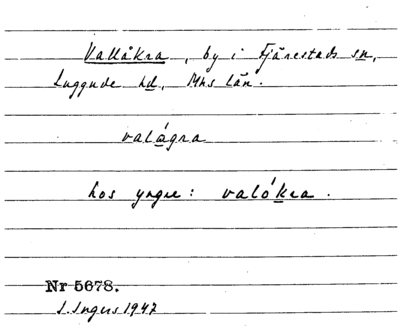 Vallåkra, by i Fjärestads sn,
Luggude hd, Mhs län.
valágra
hos yngre: valókra.
Nr 5678.
S. Ingers 1947